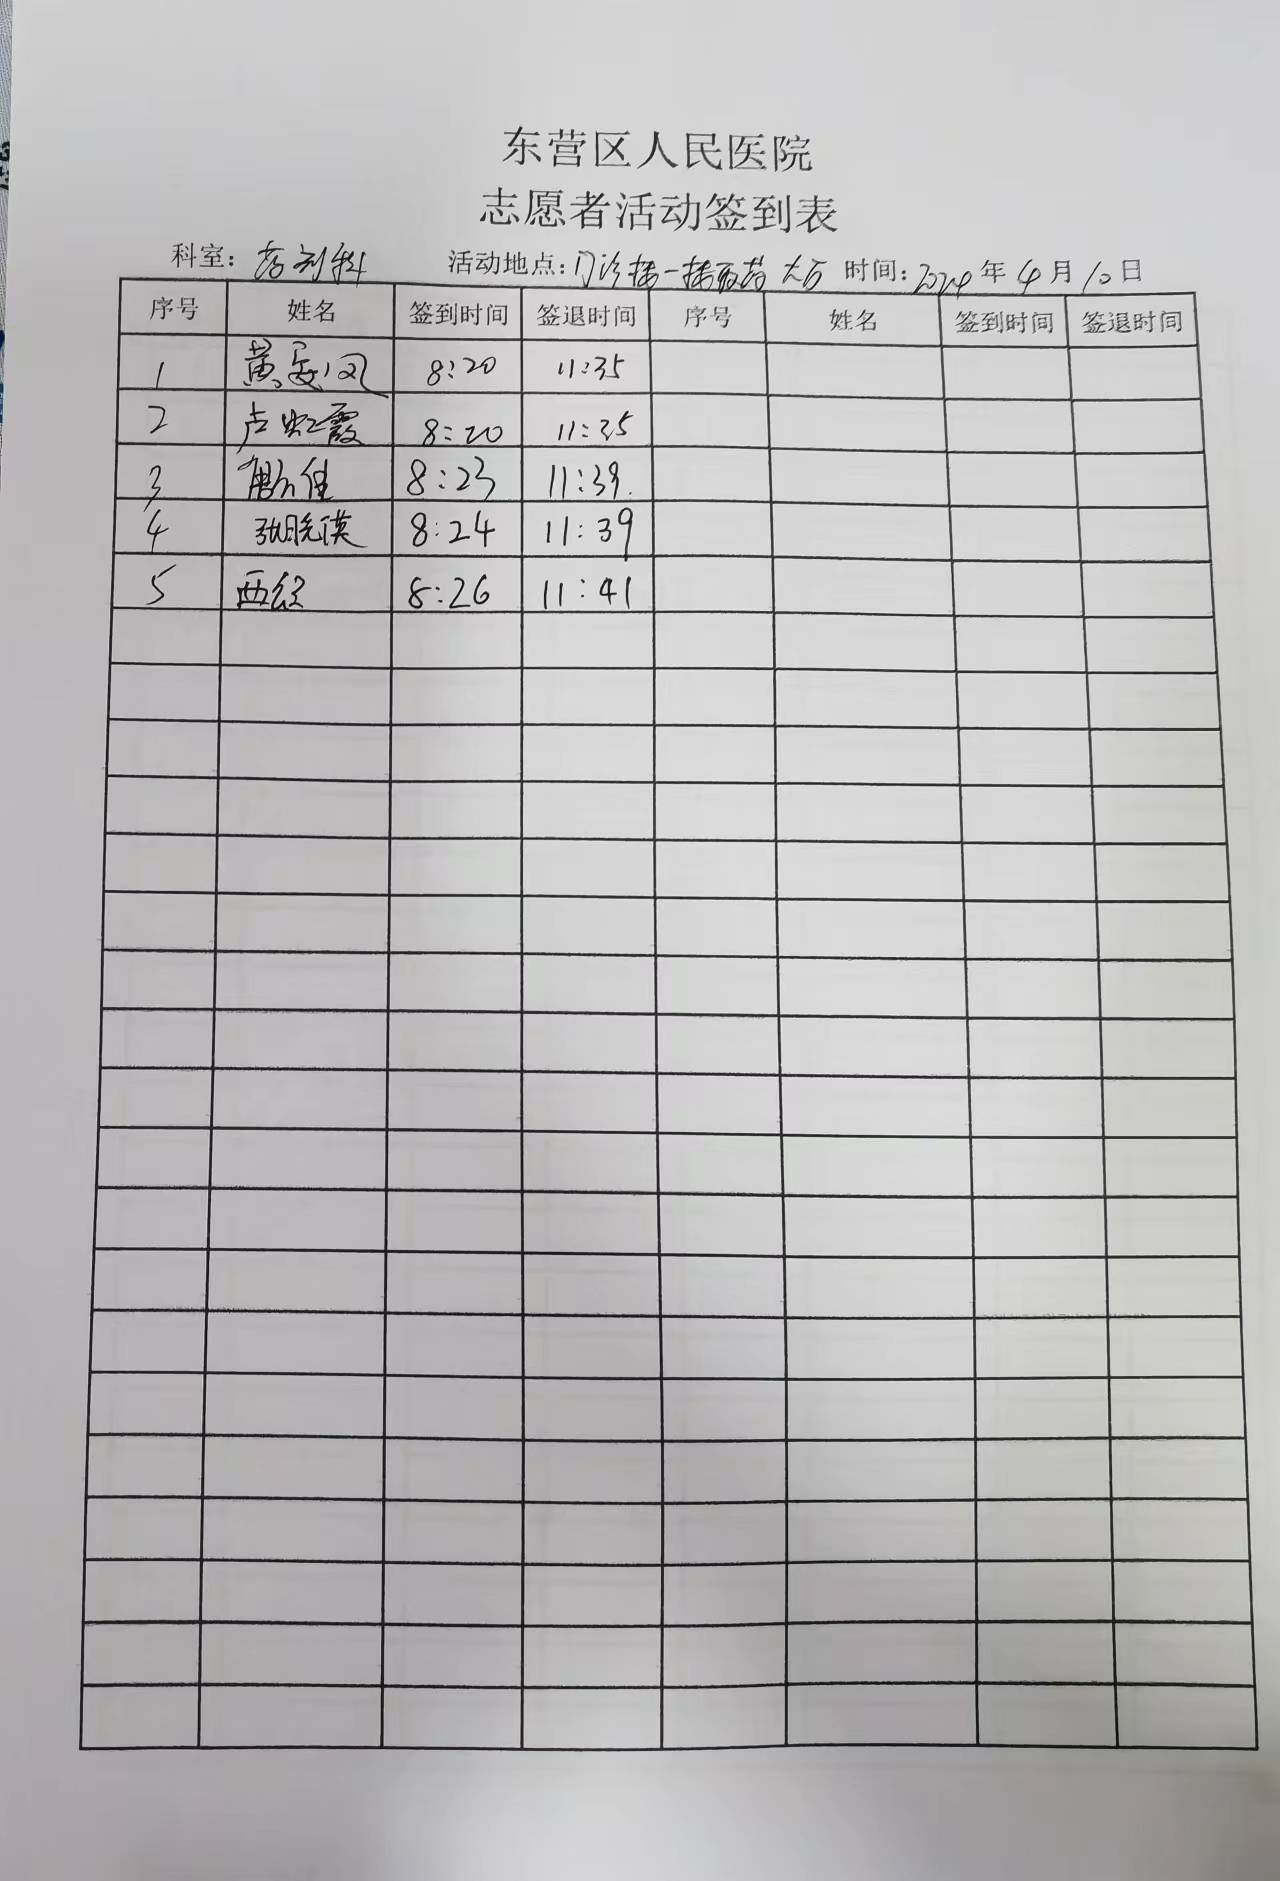 东营区人民医院
志愿者活动签到表
科室：药剂科 活动地点：门诊楼一楼取药大厅 时间：2024年4月10日
序号 姓名 签到时间 签退时间 序号 姓名 签到时间 签退时间
1 黄 凤 8:20 11:35
2 卢虹霞 8:20 11:35
3 佳 8:23 11:39.
4 张晓 8:24 11:39
5 西 8:26 11:41